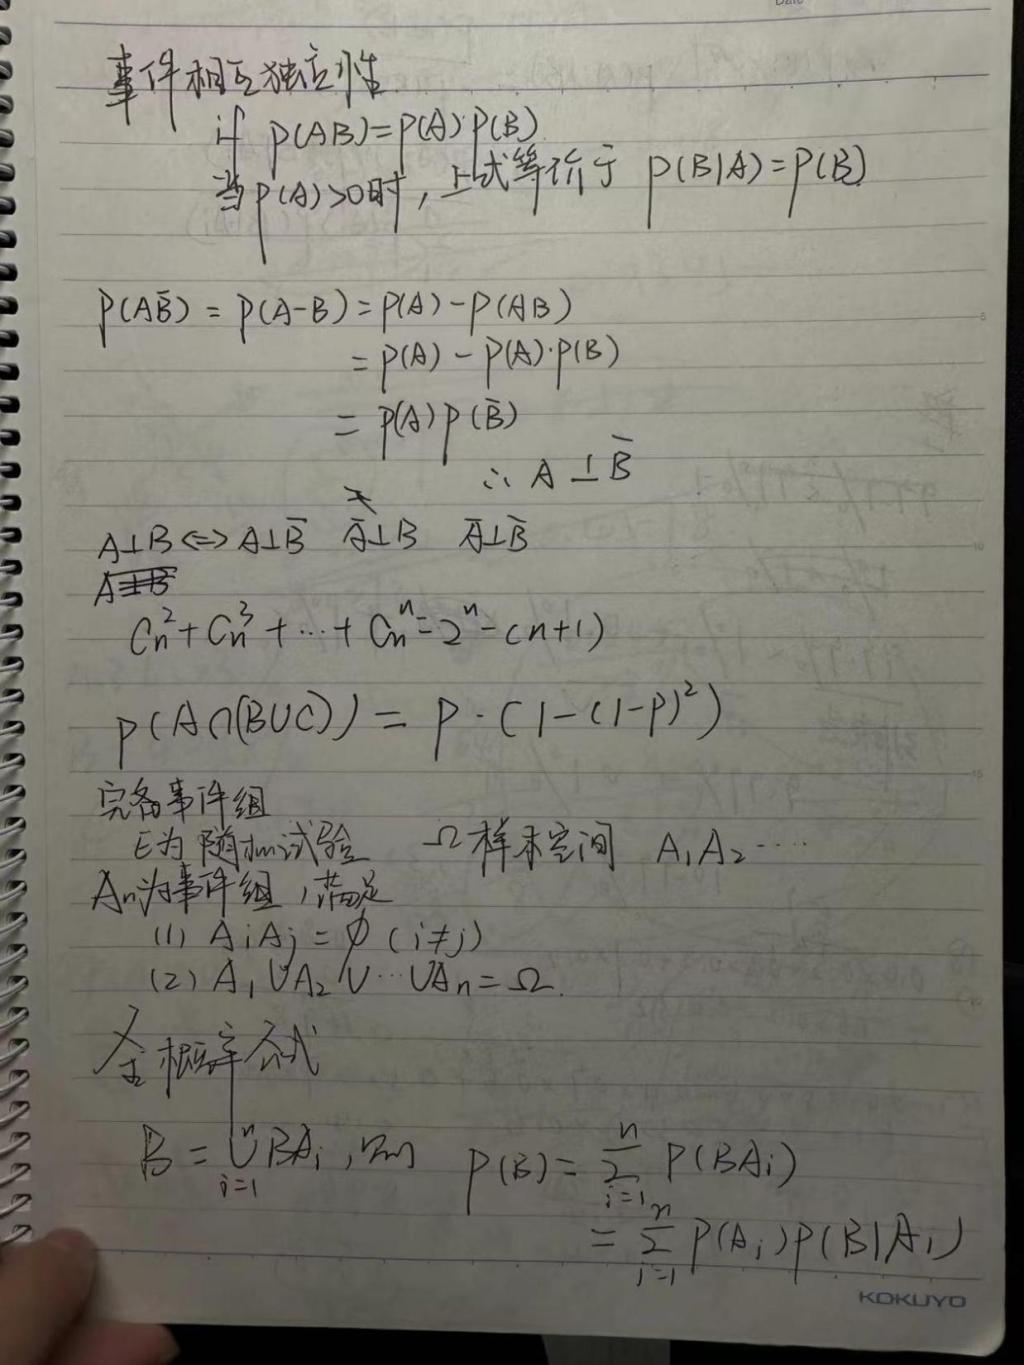 Date
事件相互独立性
if P(AB)=P(A)·P(B)
当P(A)>0时,上式等价于 P(B|A)=P(B)
P(AB̄) = P(A-B) = P(A)-P(AB)
= P(A) - P(A)·P(B)
= P(A)P(B̄)
∴ A⊥B̄
A⊥B<=>A⊥B̄ Ā⊥B Ā⊥B̄
Cn²+Cn³+…+Cnⁿ=2ⁿ-(n+1)
P(A∩(B∪C)) = P·(1-(1-P)²)
完备事件组
E为随机试验 Ω样本空间 A₁A₂····
An为事件组,满足
(1) AiAj=∅ (i≠j)
(2) A₁∪A₂∪…∪An=Ω.
全概率公式
B = ⋃ⁿᵢ₌₁ BAi,则 P(B)= ∑ⁿᵢ₌₁ P(BAi)
= ∑ⁿᵢ₌₁ P(Ai)P(B|Ai)
KOKUYO